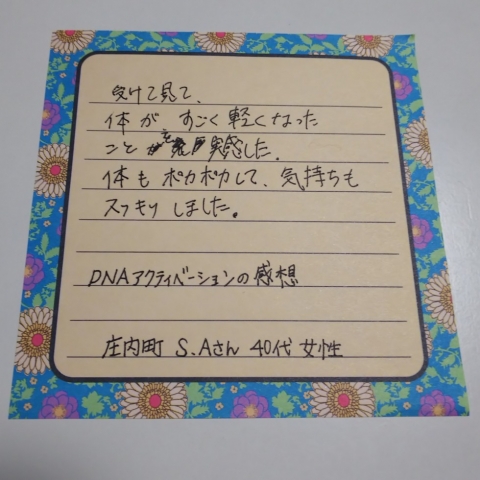 受けて見て、
体が すごく軽くなった
ことを実感した。
体も ポカポカして、気持ちも
スッキリ しました。
DNAアクティベーションの感想
庄内町 S.Aさん 40代 女性